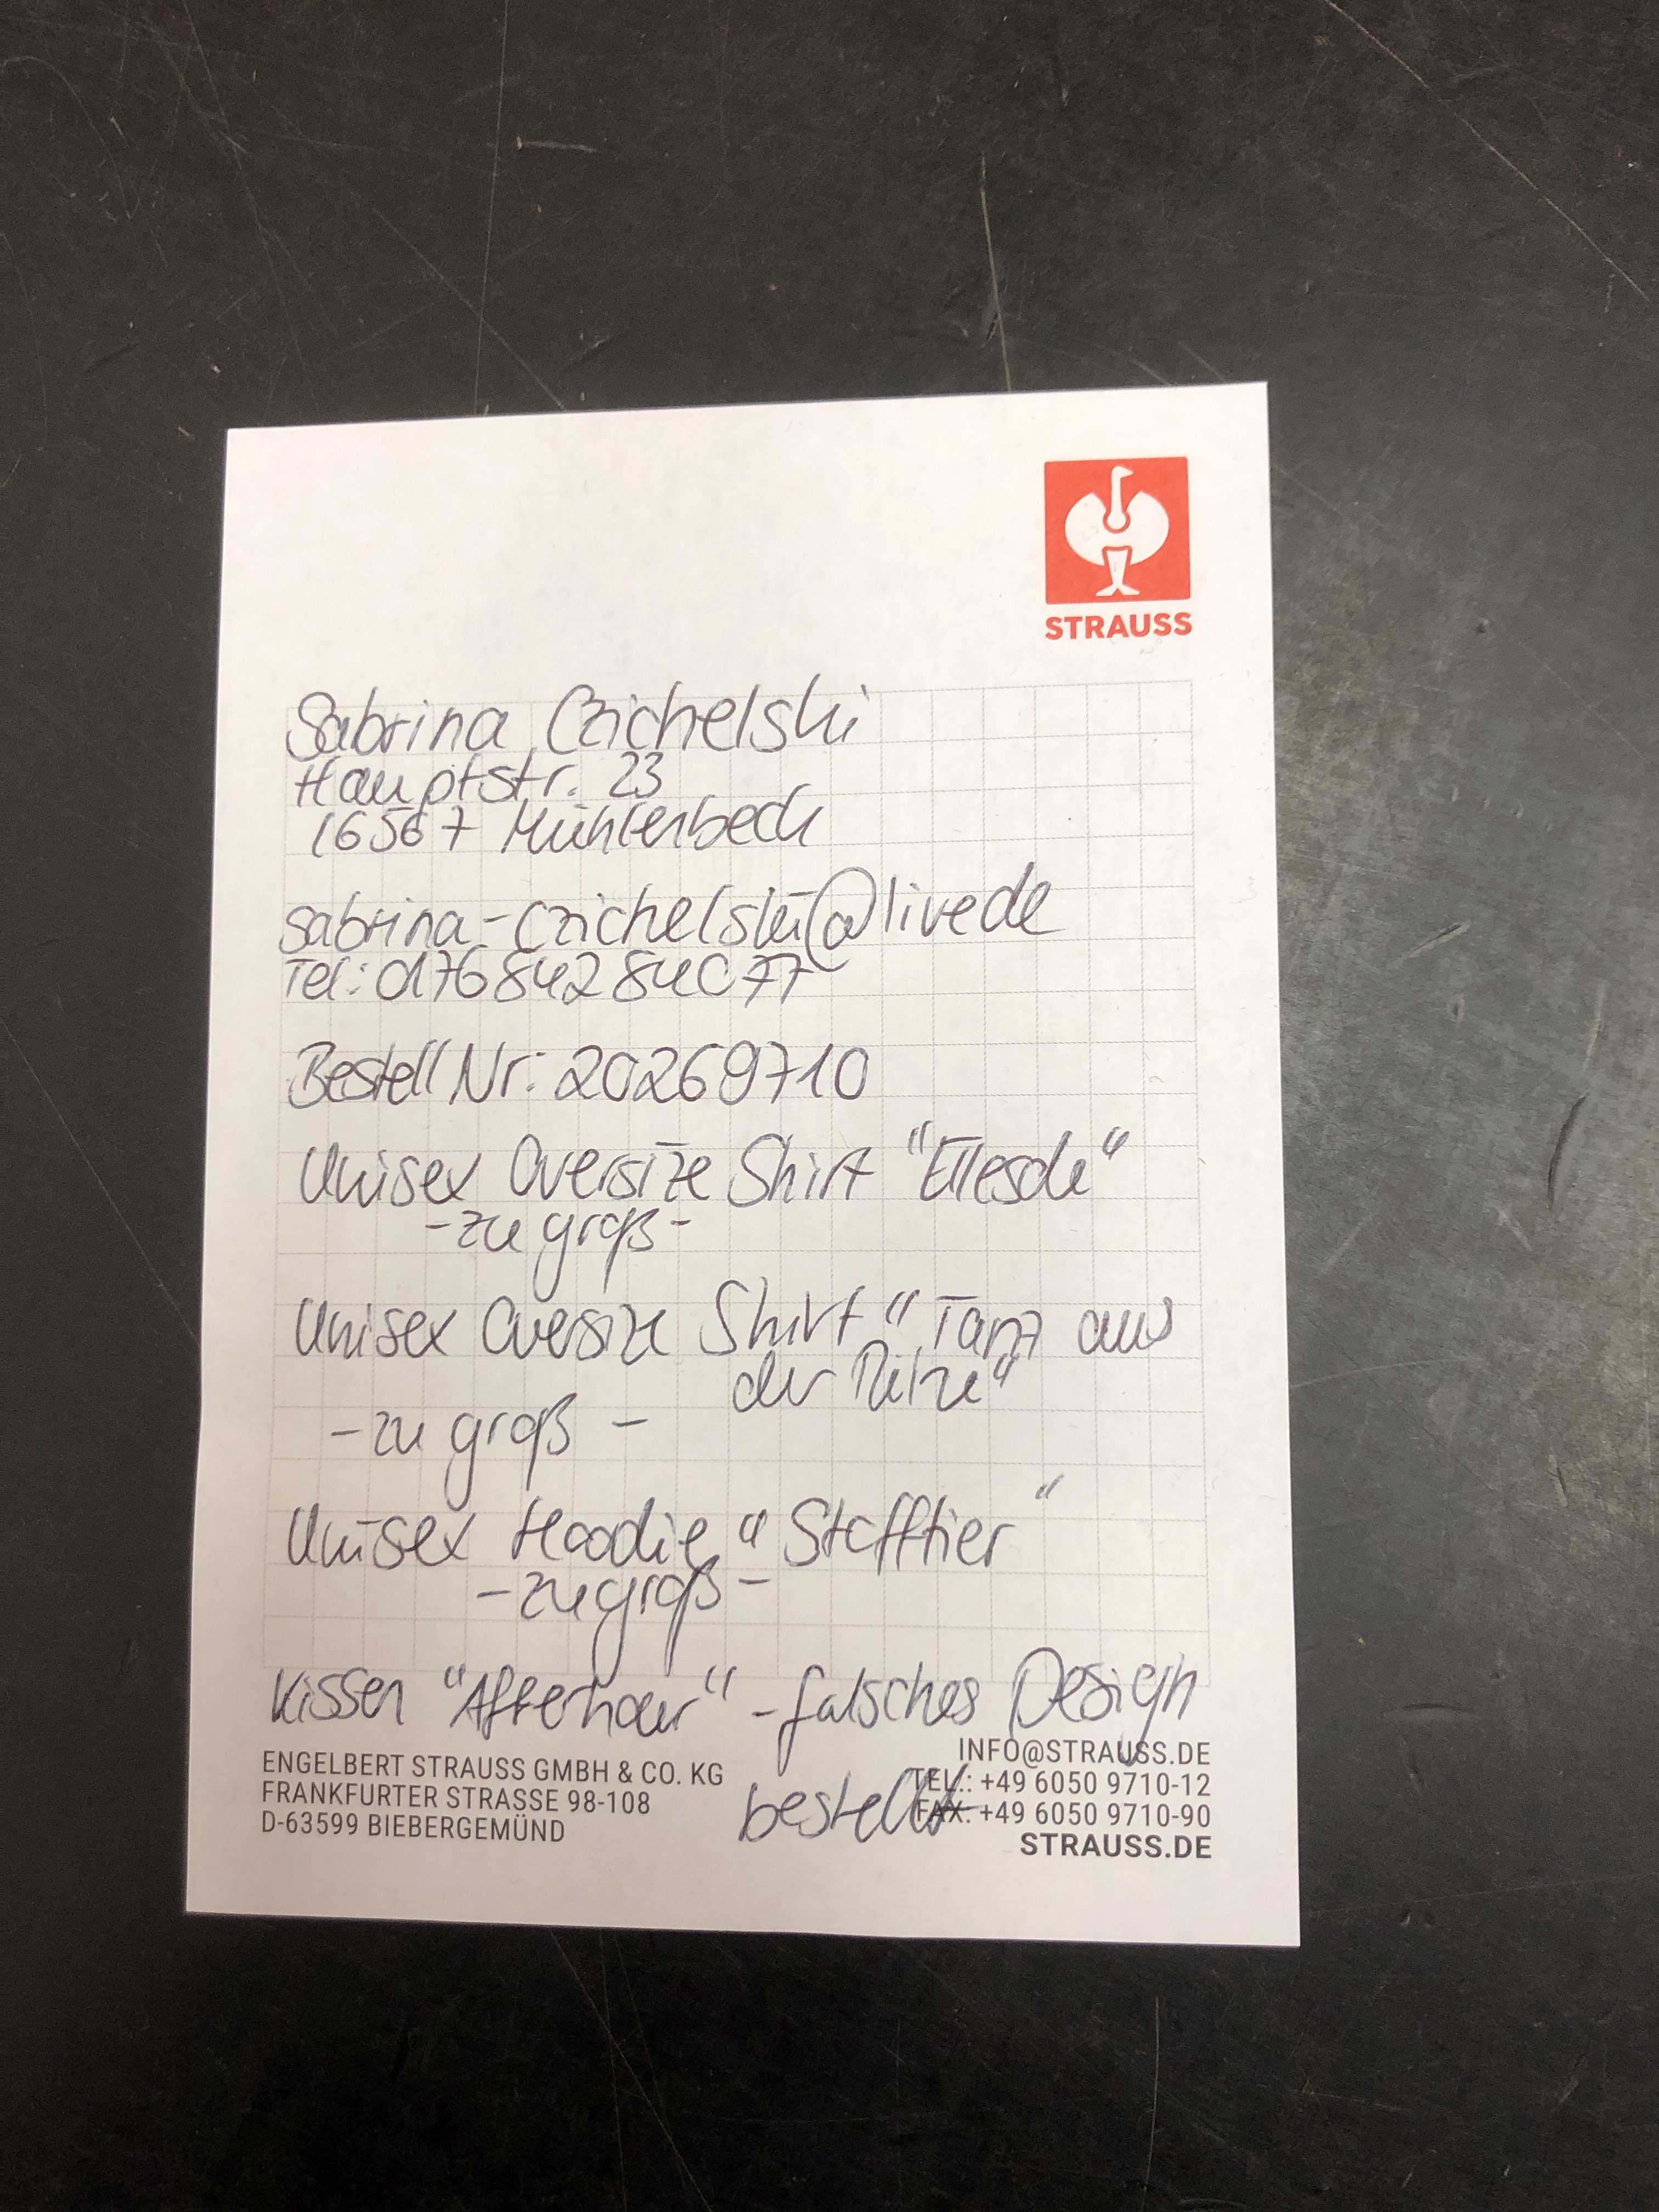 STRAUSS
Sabrina Czichelski
Hauptstr. 23
16567 Mühlenbeck
sabrina-czichelski@live.de
Tel.: 0176 84284077
Bestell Nr: 20269710
Unisex Oversize Shirt "
- zu groß -
Unisex Oversize Shirt "Tanz aus
der
- zu groß -
Unisex Hoodie "Stofftier"
- zu groß -
Kissen "Afterhour" - falsches Design
bestellt
ENGELBERT STRAUSS GMBH & CO. KG
FRANKFURTER STRASSE 98-108
D-63599 BIEBERGEMÜND
INFO@STRAUSS.DE
TEL.: +49 6050 9710-12
FAX: +49 6050 9710-90
STRAUSS.DE